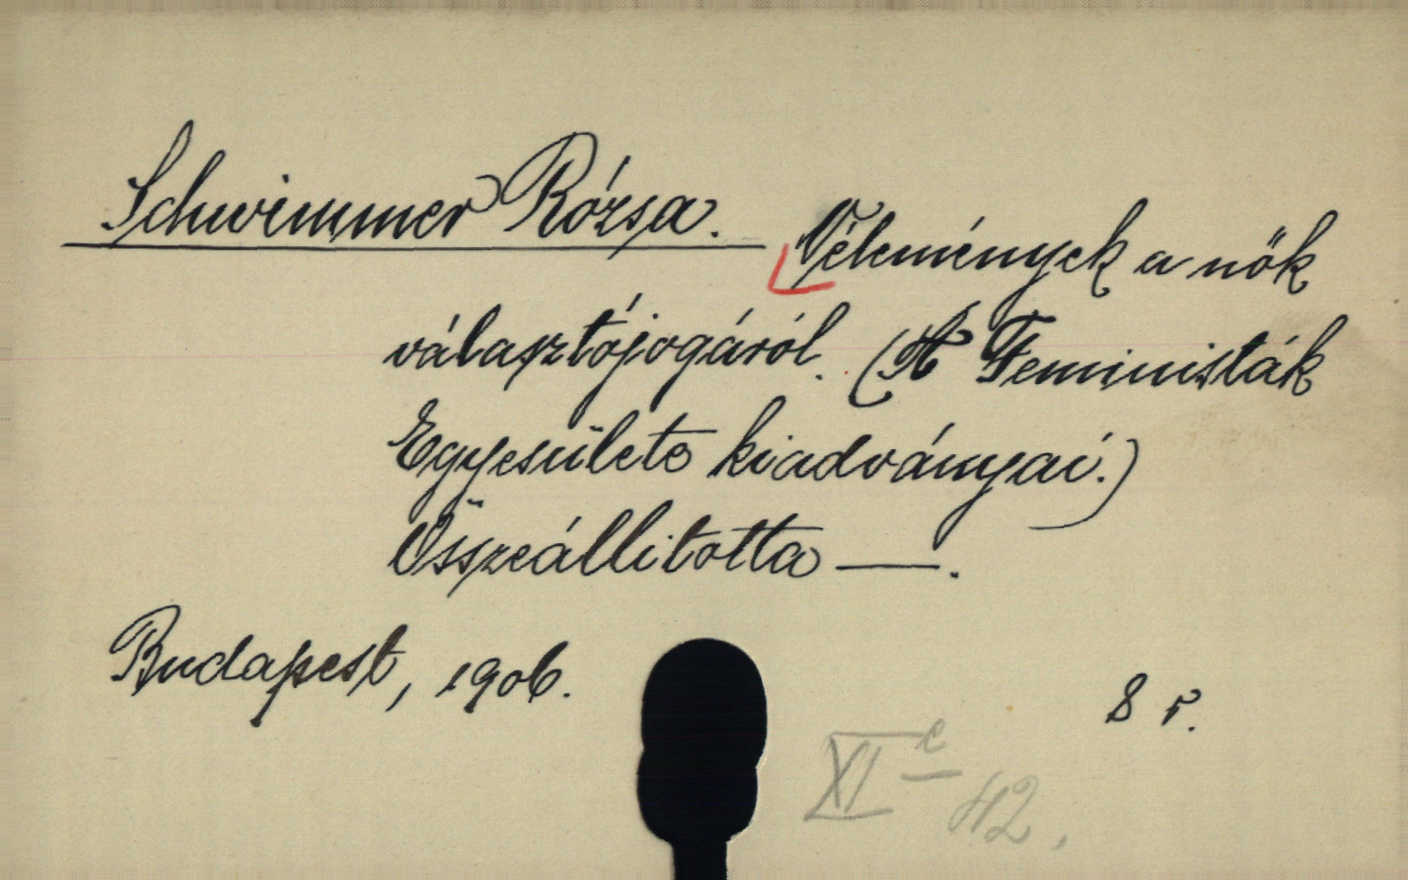 Schwimmer Rózsa. Vélemények a nők
választójogáról. (A Feministák
Egyesülete kiadványai.)
Összeállitotta —.
Budapest, 1906.
8 r.
XI c 42.